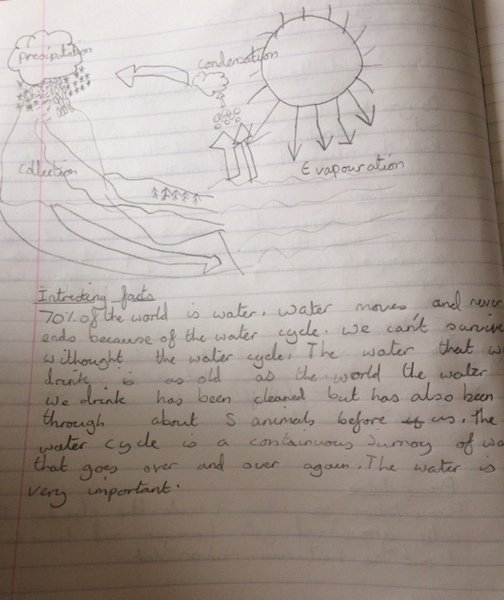 Precipitation
condensation
Collection
Evapouration
Intresting facts
70% of the world is water. water moves and never
ends because of the water cycle. we can't survive
withought the water cycle. The water that w
drink is as old as the world the water
we drink has been cleaned but has also been
through about 5 animals before us. The
water cycle is a continuous Jurnoy of wa
that goes over and over again. The water is
very important.